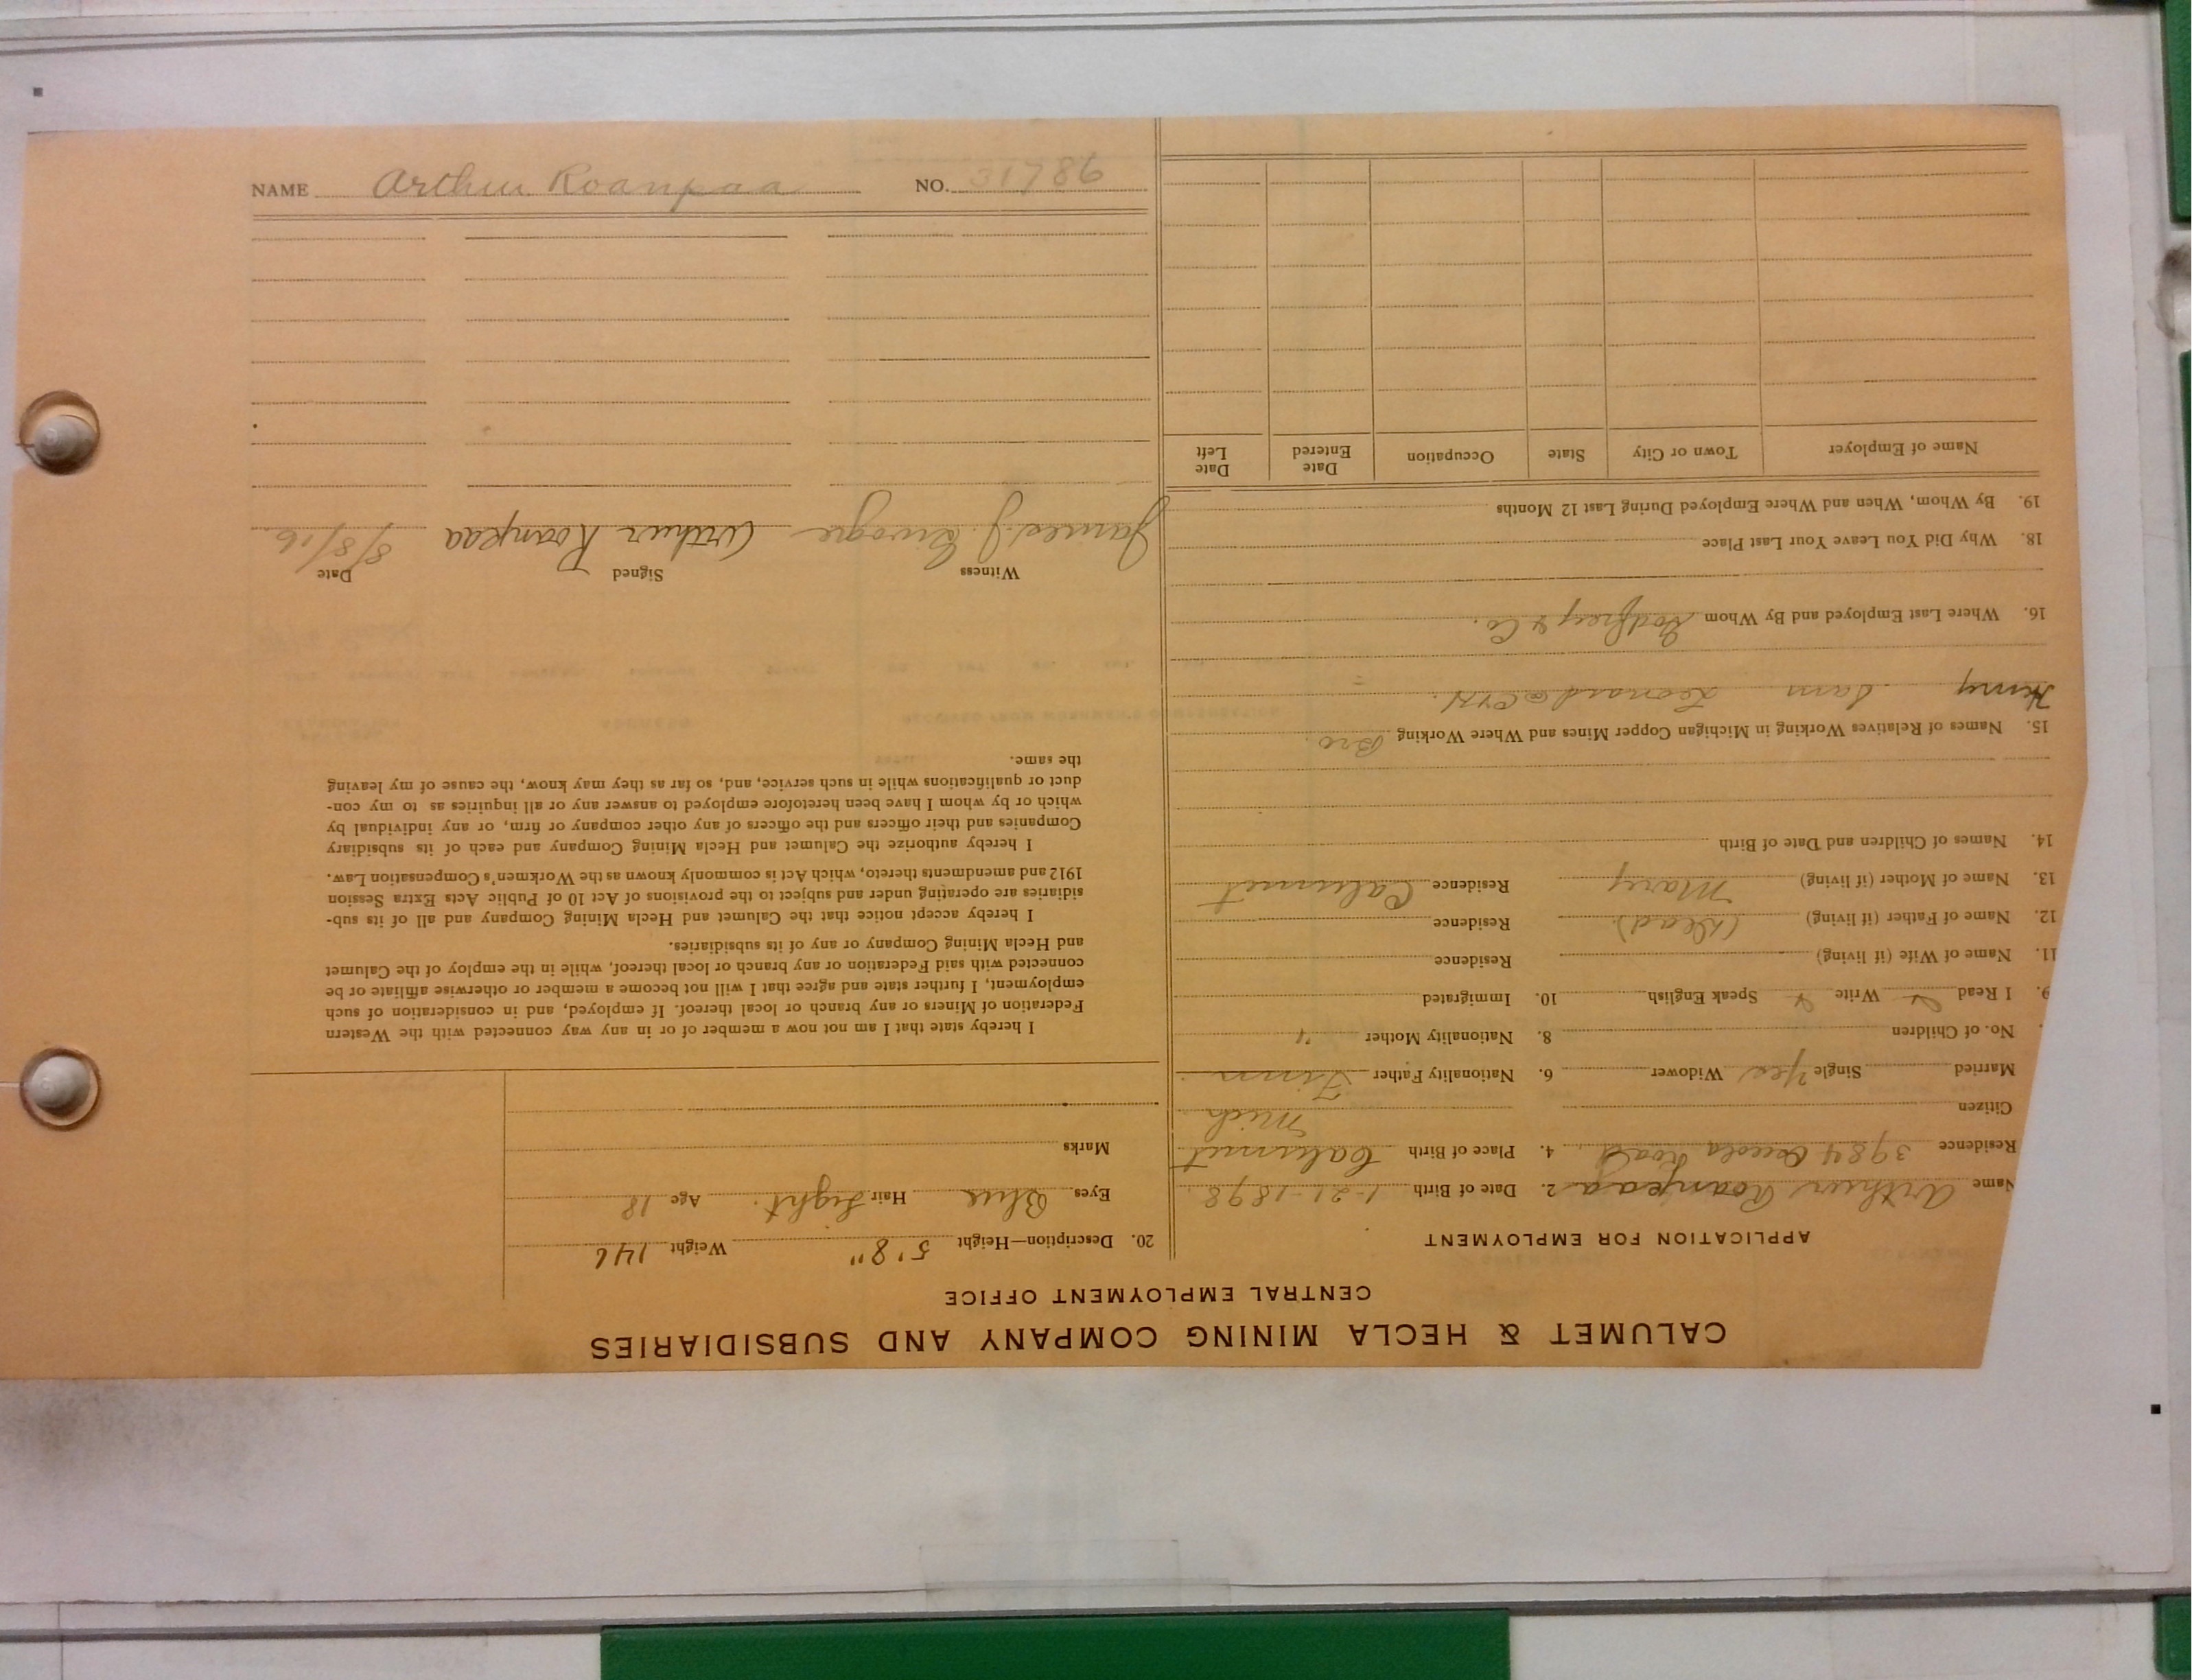 CALUMET & HECLA MINING COMPANY AND SUBSIDIARIES
CENTRAL EMPLOYMENT OFFICE
APPLICATION FOR EMPLOYMENT
Name Arthur Roanpaa 2. Date of Birth 1-21-1898
Residence 3984 Osceola Road. 4. Place of Birth Calumet
Citizen Mich
Married Single Yes Widower 6. Nationality Father Finn
No. of Children 8. Nationality Mother "
9. I Read Write Speak English 10. Immigrated
11. Name of Wife (if living) Residence
12. Name of Father (if living) (Dead) Residence
13. Name of Mother (if living) Mary Residence Calumet
14. Names of Children and Date of Birth
15. Names of Relatives Working in Michigan Copper Mines and Where Working Bro.
Henry Sam Leonard @ C&H.
16. Where Last Employed and By Whom Godfrey & Co.
18. Why Did You Leave Your Last Place
19. By Whom, When and Where Employed During Last 12 Months
Name of Employer Town or City State Occupation Date Entered Date Left
20. Description—Height 5' 8" Weight 146
Eyes Blue Hair Light. Age 18
Marks
I hereby state that I am not now a member of or in any way connected with the Western
Federation of Miners or any branch or local thereof. If employed, and in consideration of such
employment, I further state and agree that I will not become a member or otherwise affiliate or be
connected with said Federation or any branch or local thereof, while in the employ of the Calumet
and Hecla Mining Company or any of its subsidiaries.
I hereby accept notice that the Calumet and Hecla Mining Company and all of its sub-
sidiaries are operating under and subject to the provisions of Act 10 of Public Acts Extra Session
1912 and amendments thereto, which Act is commonly known as the Workmen's Compensation Law.
I hereby authorize the Calumet and Hecla Mining Company and each of its subsidiary
Companies and their officers and the officers of any other company or firm, or any individual by
which or by whom I have been heretofore employed to answer any or all inquiries as to my con-
duct or qualifications while in such service, and, so far as they may know, the cause of my leaving
the same.
Witness Signed Date
James J. Arthur Roanpaa 8/8/16
NAME Arthur Roanpaa NO. 31786